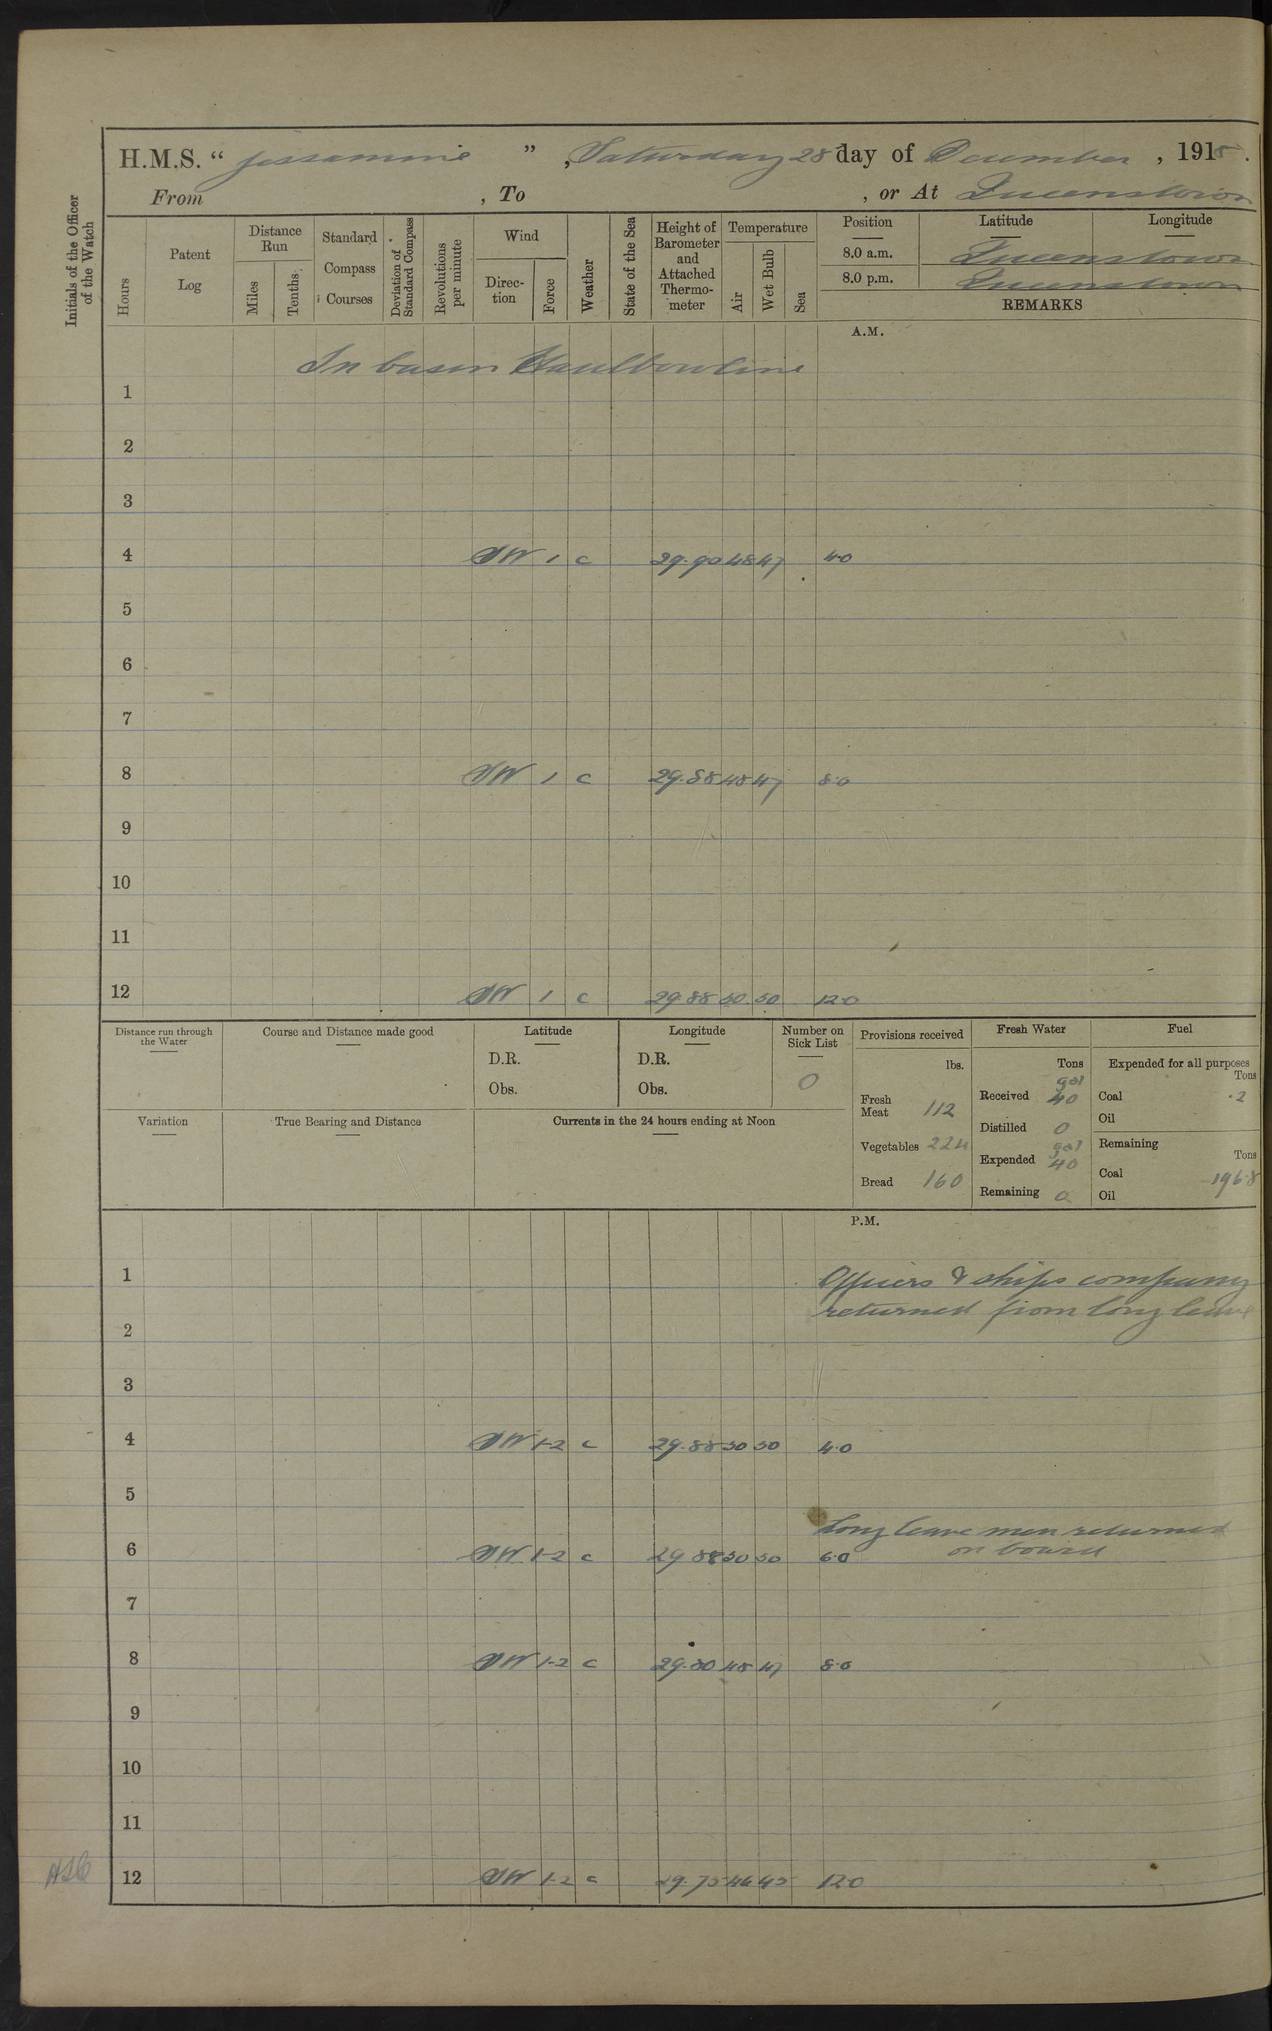 H.M.S. “ Jessamine ” , Saturday 28 day of December , 1918.
From , To , or At Queenstown
Initials of the Officer of the Watch
Hours
Patent Log
Distance Run
Miles
Tenths
Standard Compass Courses
Deviation of Standard Compass
Revolutions per minute
Wind
Direction
Force
Weather
State of the Sea
Height of Barometer and Attached Thermometer
Temperature
Air
Wet Bulb
Sea
Position Latitude Longitude
8.0 a.m. Queenstown
8.0 p.m. Queenstown
REMARKS
A.M.
In basin Haulbowline
1
2
3
4 SW 1 c 29.90 48 47 4.0
5
6
7
8 SW 1 c 29.88 48 47 8.0
9
10
11
12 SW 1 c 29.88 50 50 12.0
Distance run through the Water
Course and Distance made good
Latitude
D.R.
Obs.
Longitude
D.R.
Obs.
Number on Sick List
0
Variation
True Bearing and Distance
Currents in the 24 hours ending at Noon
Provisions received
lbs.
Fresh Meat 112
Vegetables 224
Bread 160
Fresh Water
Tons
Received gal 40
Distilled 0
Expended gal 40
Remaining 0
Fuel
Expended for all purposes
Tons
Coal .2
Oil
Remaining
Tons
Coal 196.8
Oil
P.M.
1 Officers & ships company
returned from long leave
2
3
4 SW 1-2 c 29.88 50 50 4.0
5
Long leave men returned
on board
6 SW 1-2 c 29.88 50 50 6.0
7
8 SW 1-2 c 29.80 48 47 8.0
9
10
11
12 SW 1-2 c 29.75 46 45 12.0